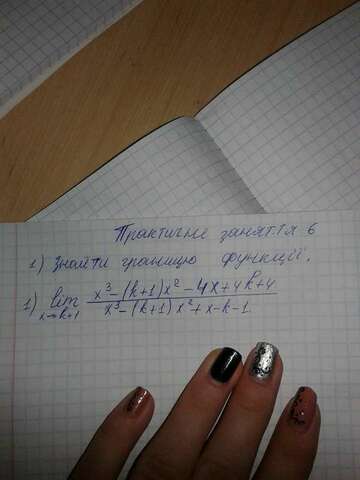 Практичне заняття 6
1) Знайти границю функції.
1) lim x→k+1 x³-(k+1)x²-4x+4k+4 / x³-(k+1)x²+x-k-1